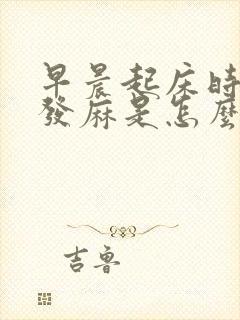 早晨起床時
發麻是怎麼
吉魯